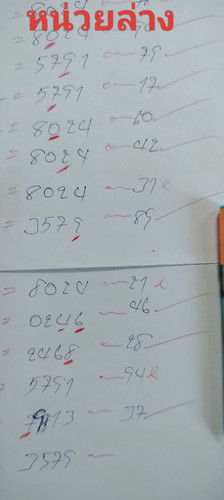 หน่วยล่าง
8024
= 5791 — 79
5791 — 17
= 8024 — 60
= 8024 — 42
= 8024 — 31
= 3579 — 89
= 8024 — 21
= 0246 — 46
= 2468 — 28
5791 — 94
13 — 37
3579 —